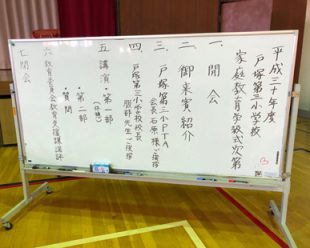 平成三十年度
戸塚第三小学校
家庭教育学級式次第
一 開会
二 御来賓紹介
三 戸塚第三小PTA
会長石原様ご挨拶
四 戸塚第三小学校校長
先生ご挨拶
五 講演・第一部
(休憩)
・第二部
・質問
六 教育委員会教育支援課講評
七 閉会